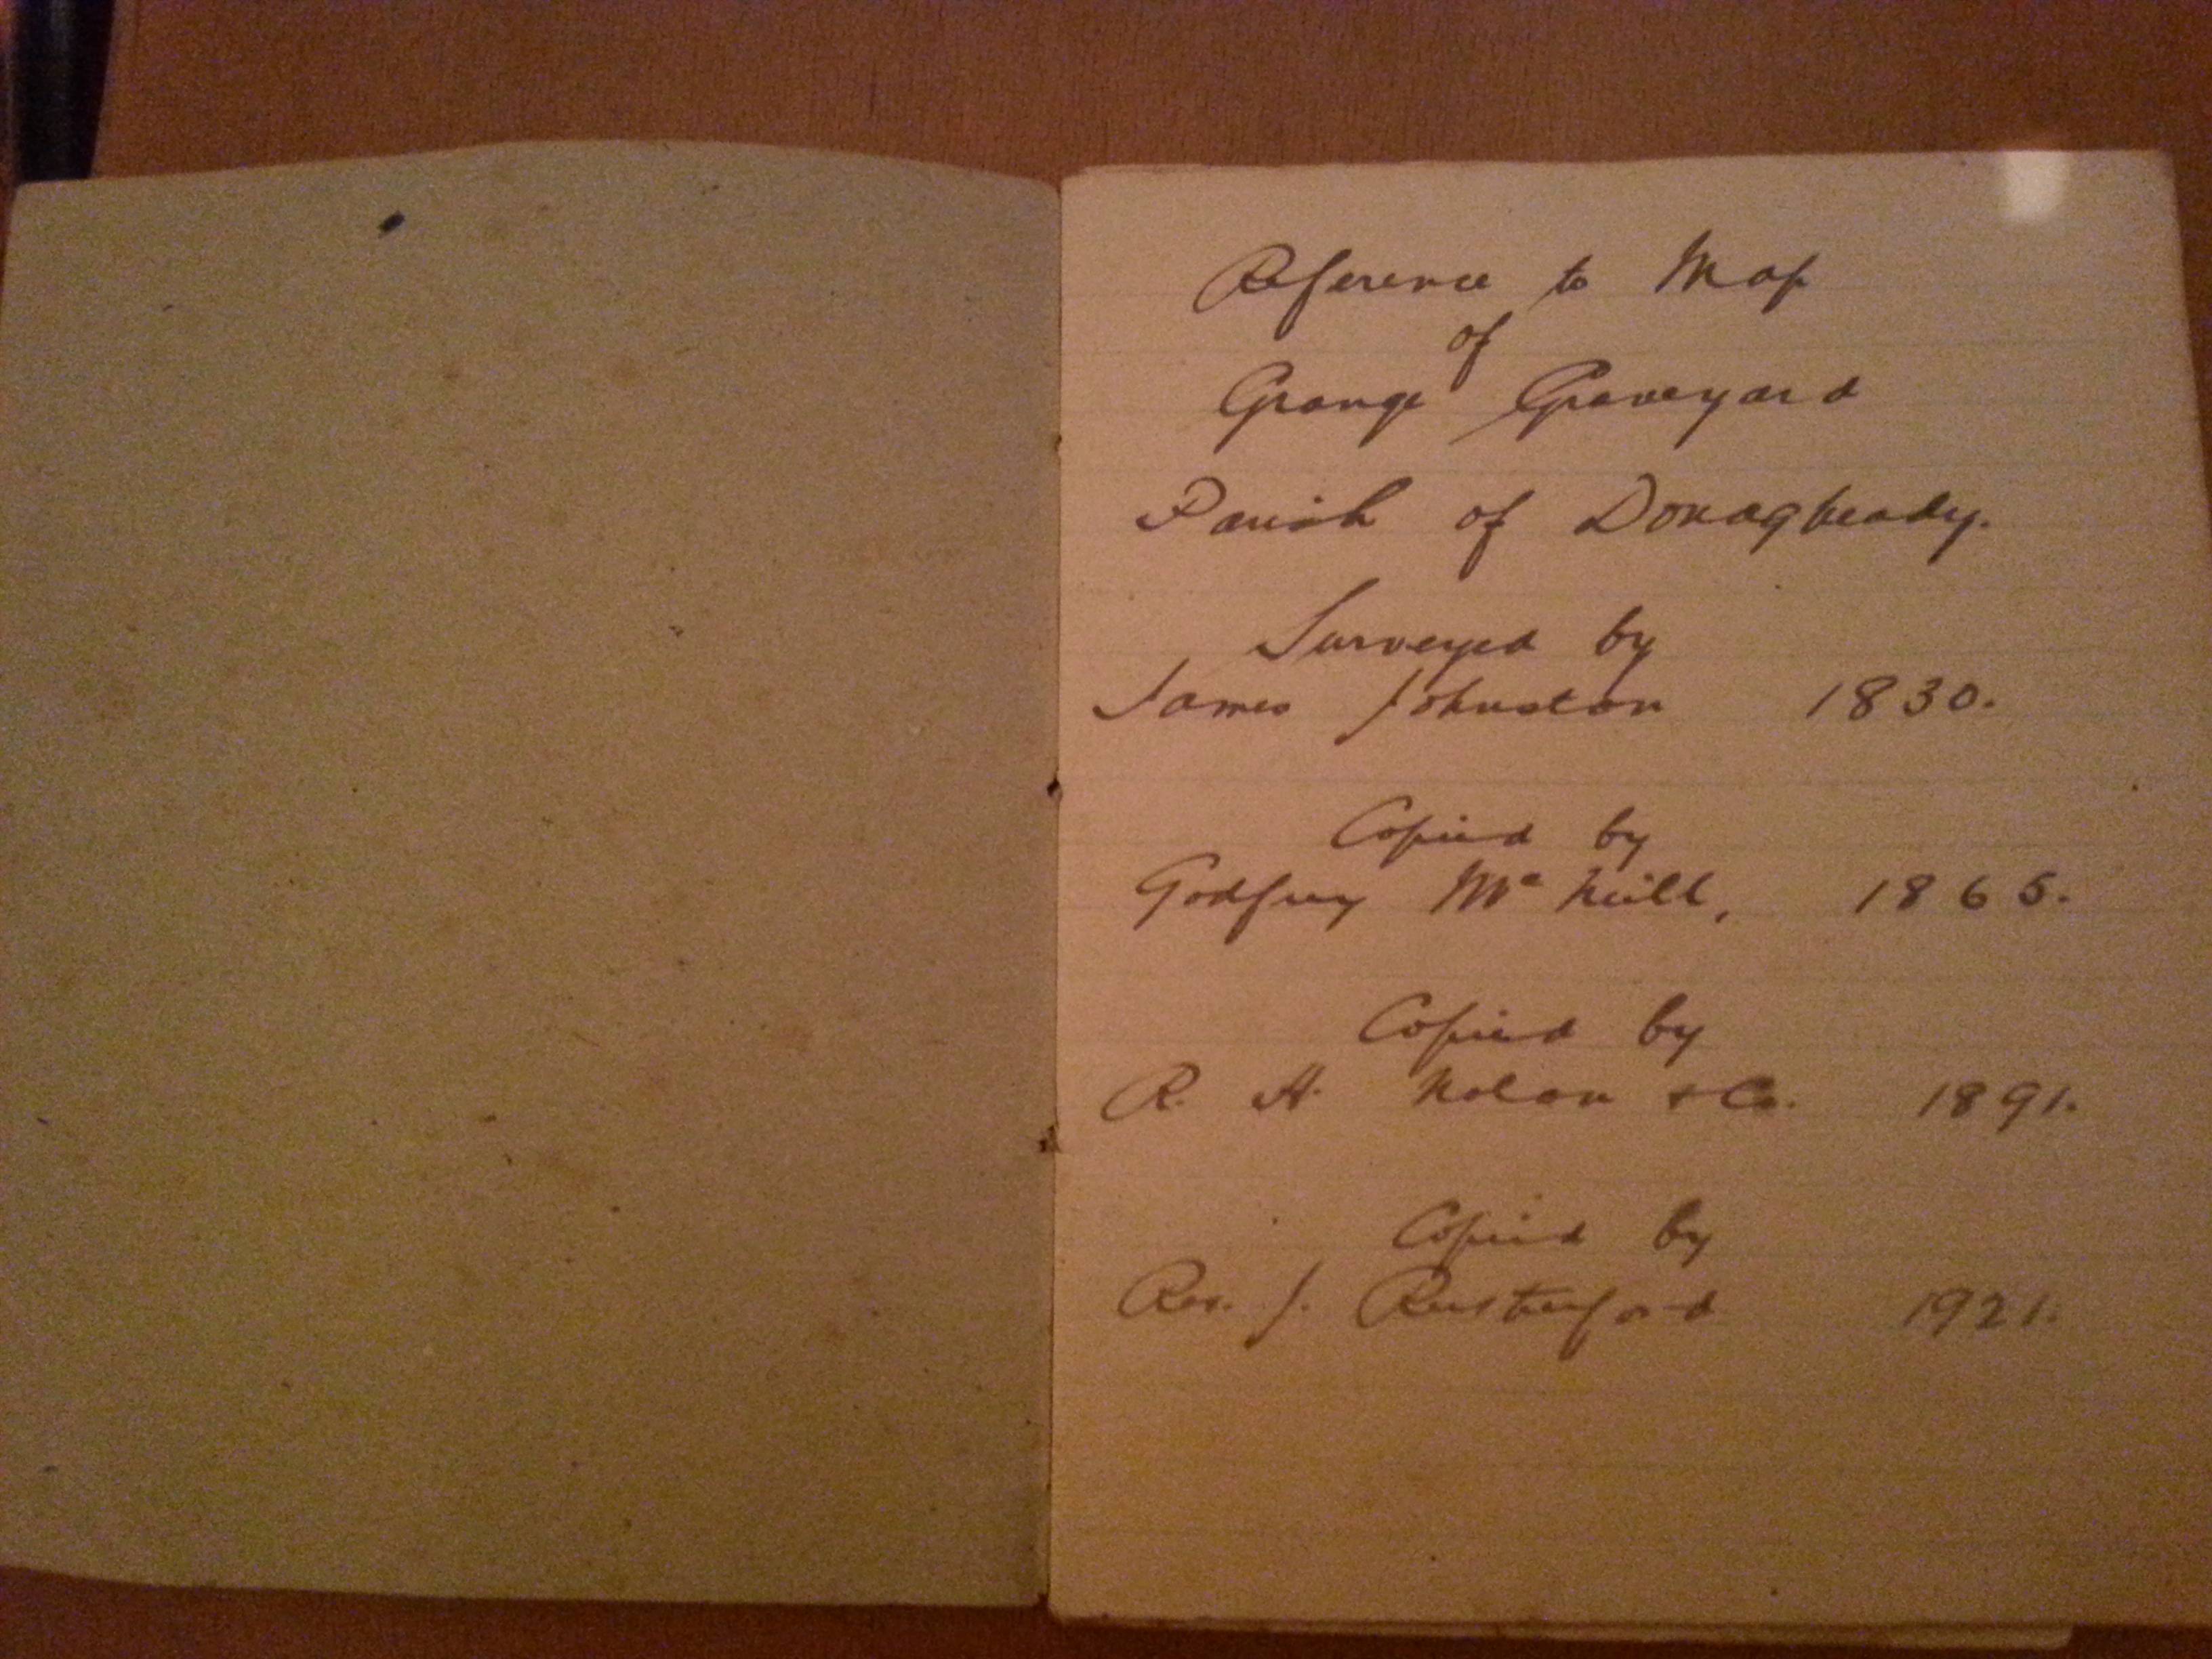 Reference to Map
of
Grange Graveyard
Parish of Donagheady.
Surveyed by
James Johnston 1830.
Copied by
Godfrey Mc Neill, 1865.
Copied by
R. H. Nolan & Co. 1891.
Copied by
Rev. J. Rutherford 1921.